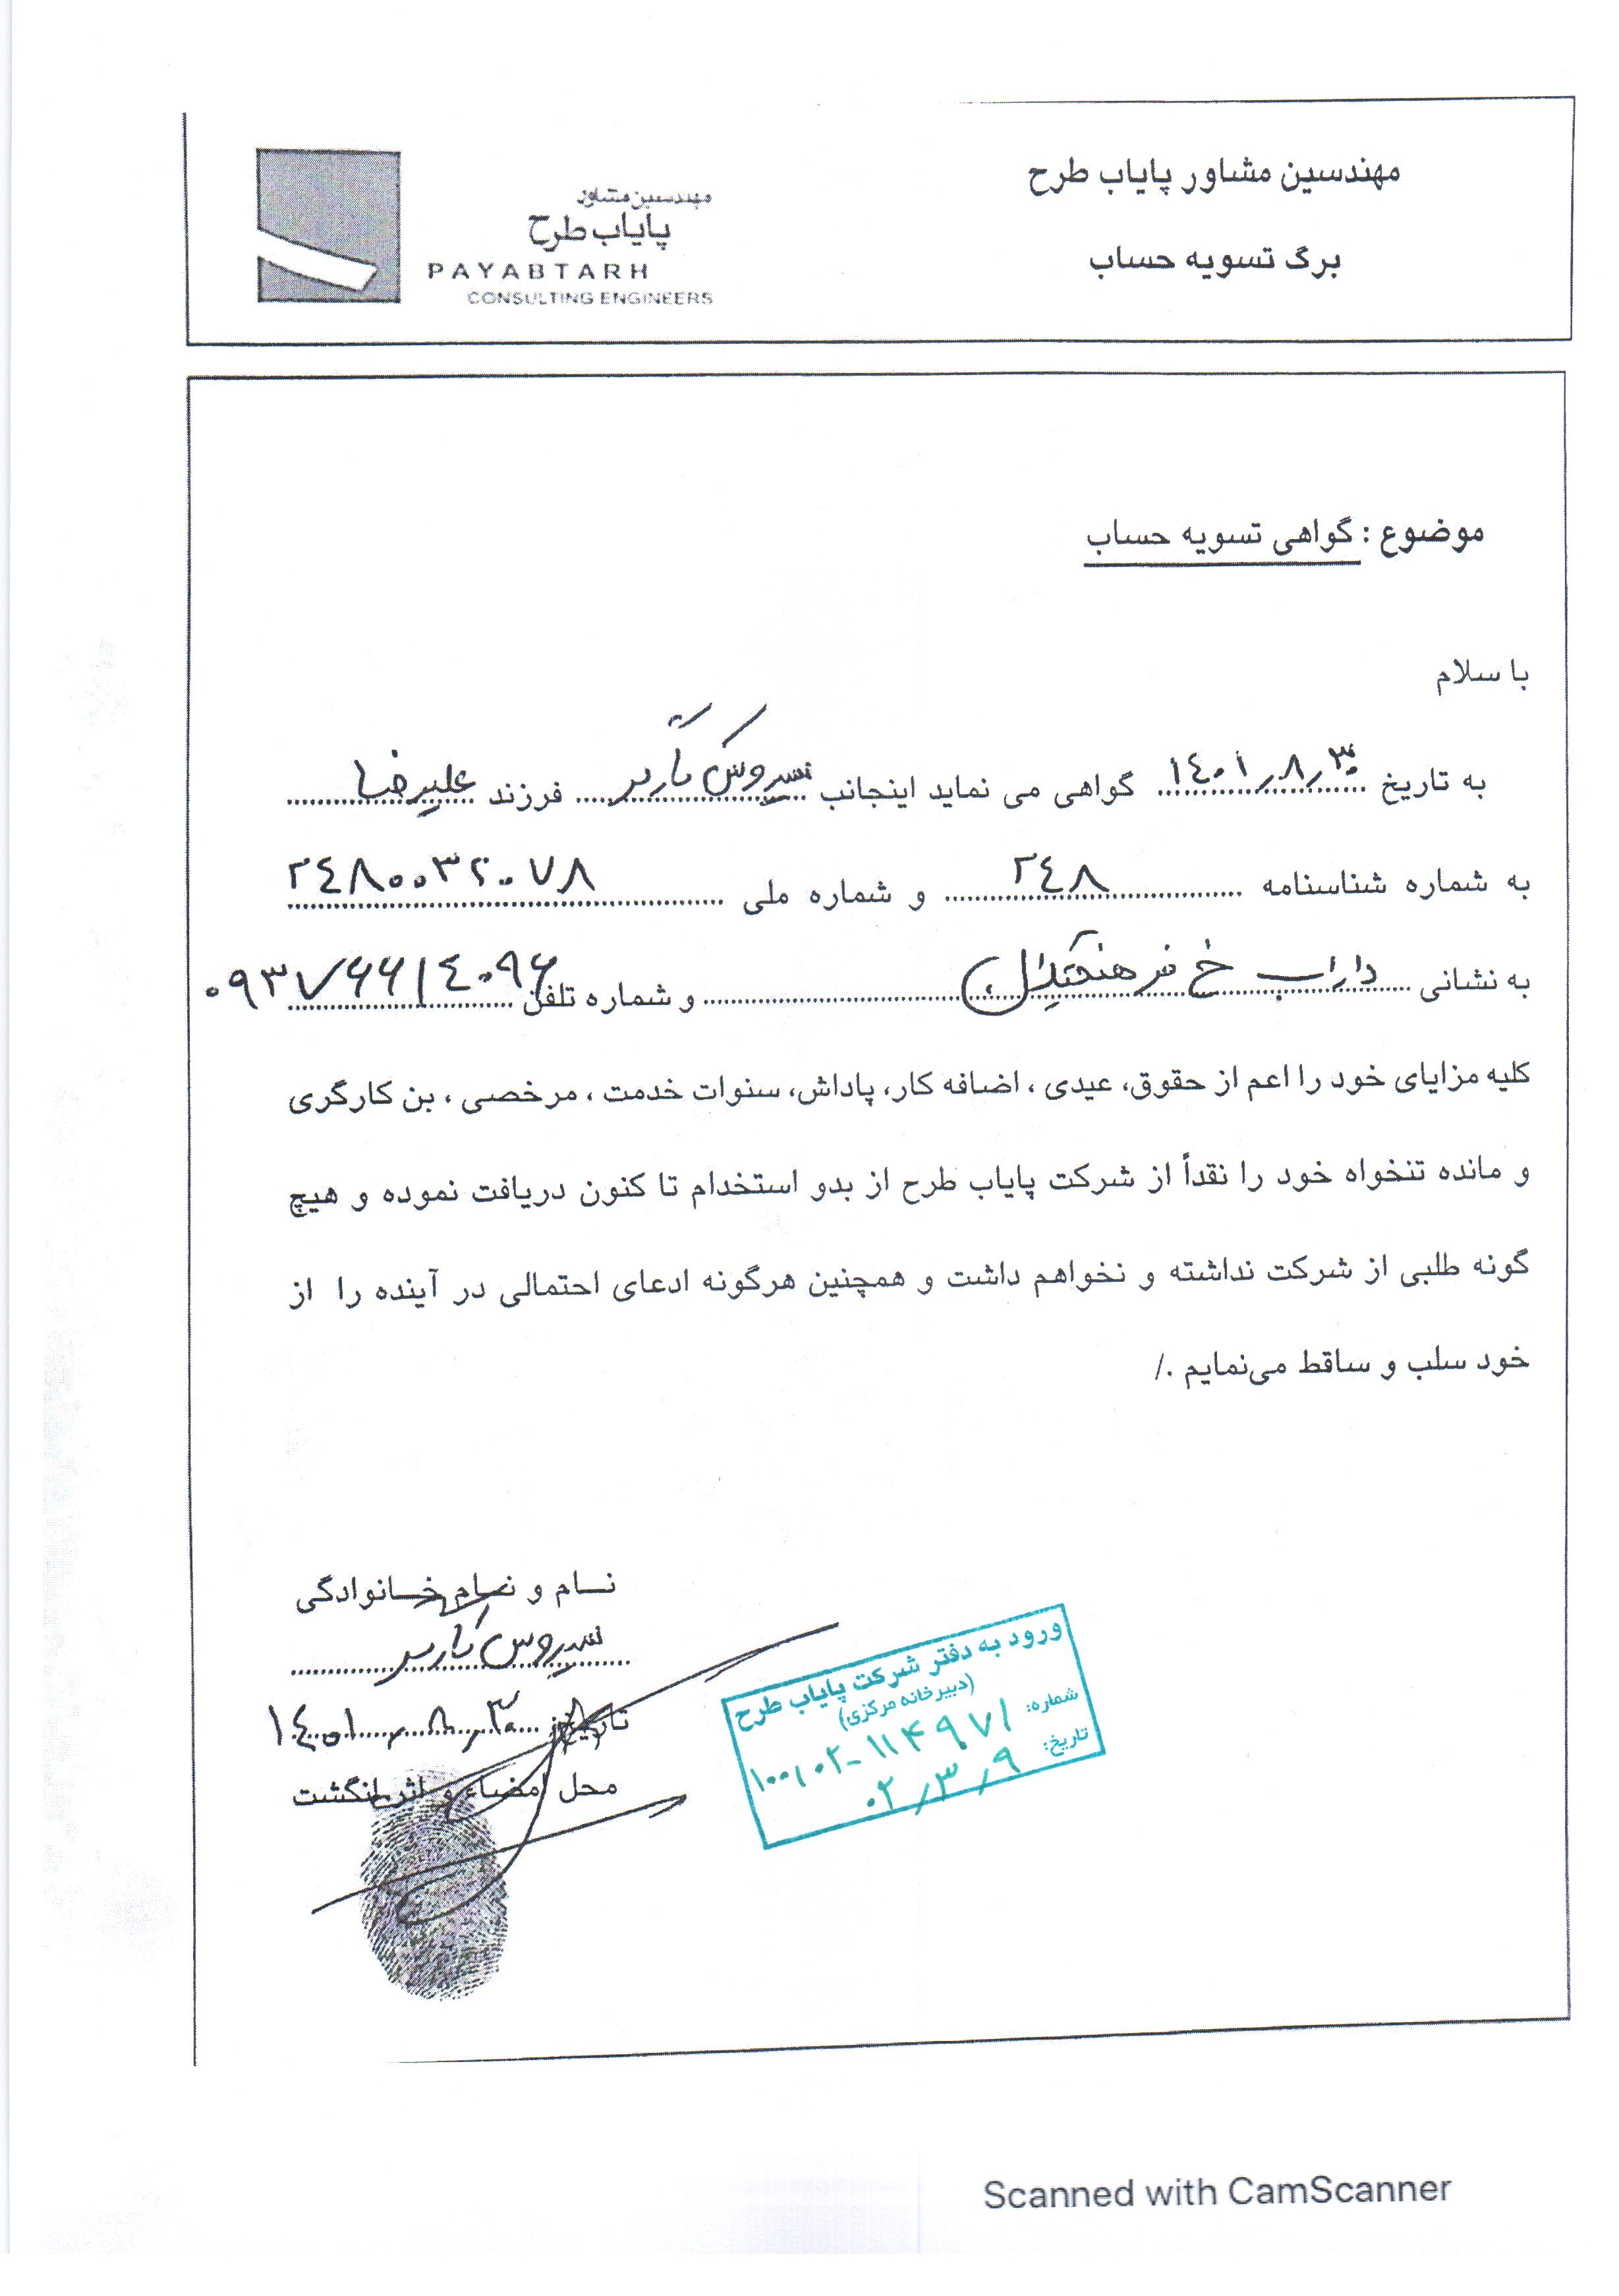 مهندسین مشاور پایاب طرح
برگ تسویه حساب
مهندسین مشاور
پایاب طرح
PAYABTARH
CONSULTING ENGINEERS
موضوع : گواهی تسویه حساب
با سلام
به تاریخ ۱۴۰۱/۸/۳۰ گواهی می نماید اینجانب سیروس فرزند علیرضا
به شماره شناسنامه ۲۴۸ و شماره ملی ۲۴۸۰۰۳۲۰۷۸
به نشانی داراب خ فرهنگیان و شماره تلفن ۰۹۳۷۶۶۱۴۰۹۶
کلیه مزایای خود را اعم از حقوق، عیدی ، اضافه کار، پاداش، سنوات خدمت ، مرخصی ، بن کارگری
و مانده تنخواه خود را نقداً از شرکت پایاب طرح از بدو استخدام تا کنون دریافت نموده و هیچ
گونه طلبی از شرکت نداشته و نخواهم داشت و همچنین هرگونه ادعای احتمالی در آینده را از
خود سلب و ساقط می‌نمایم ./
نام و نام خانوادگی
سیروس
تاریخ ۱۴۰۱/۸/۳۰
محل امضاء و اثر انگشت
ورود به دفتر شرکت پایاب طرح
(دبیرخانه مرکزی)
شماره: ۱۰۰/۰۲-۱۱۴۹۷۱
تاریخ: ۰۲/۳/۹
Scanned with CamScanner